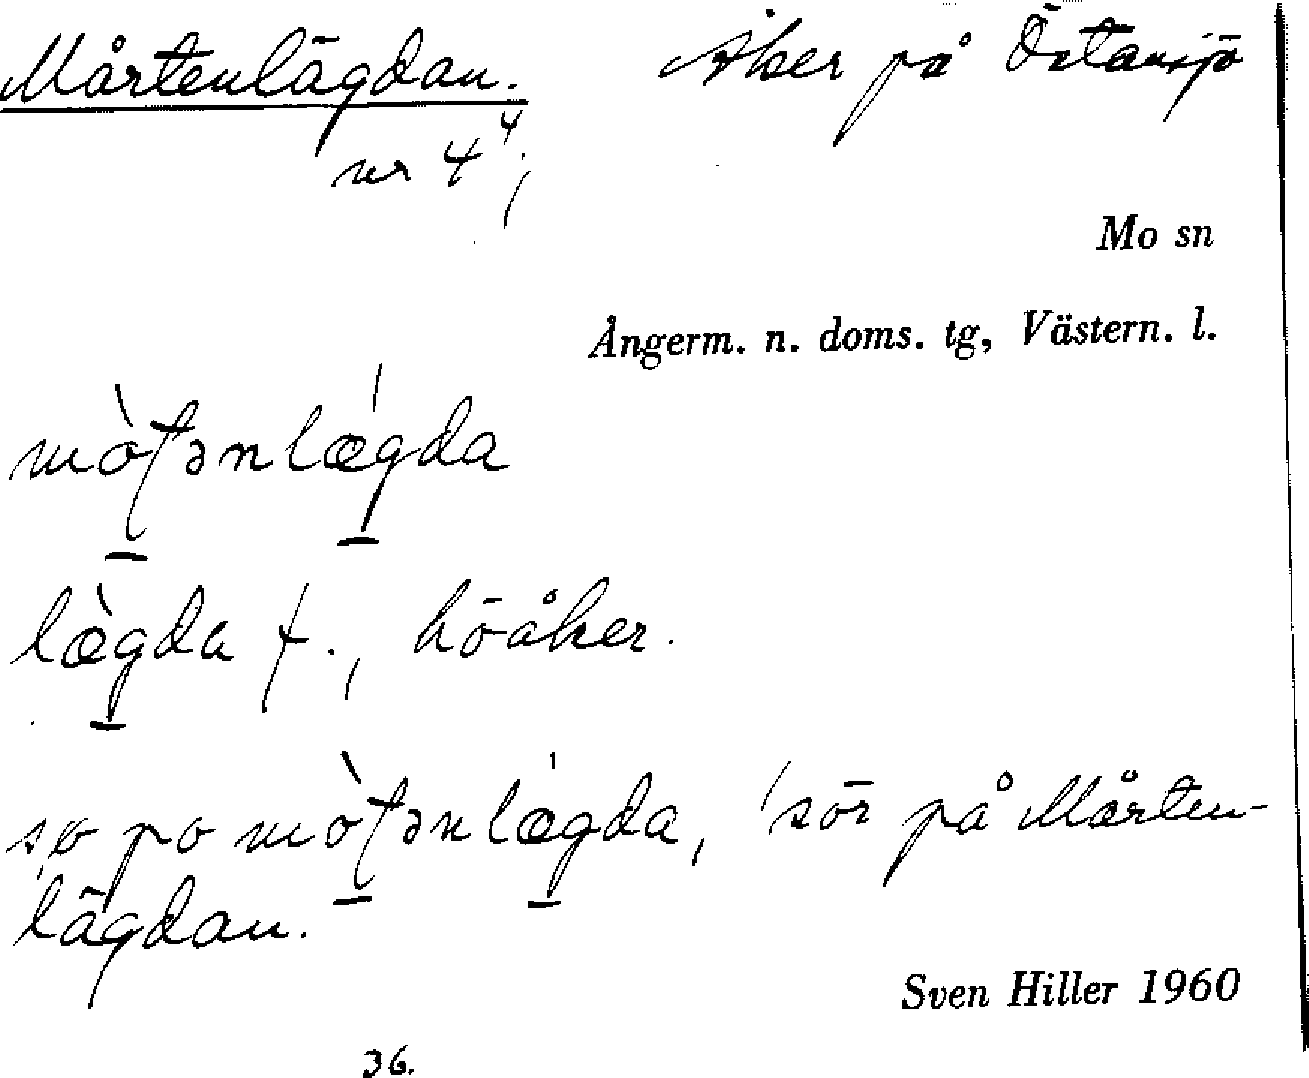 Mårtenlägdan. Åker på Östansjö
nr 4⁴;
Mo sn
Ångerm. n. doms. tg, Västern. l.
mòʈənlǽgda
lægda f., höåker.
sø po mòʈənlǽgda, 'sör på Mårten-
lägdan.
Sven Hiller 1960
36.